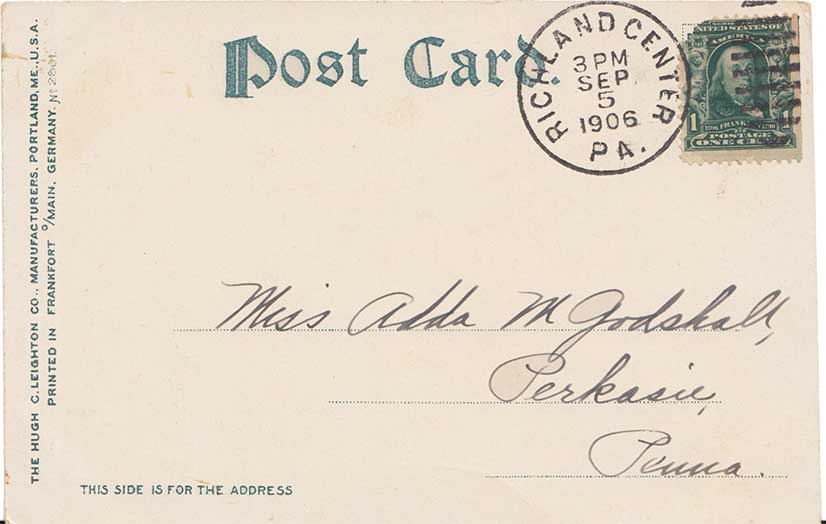 Post Card.
RICHLAND CENTER
3 PM
SEP
5
1906
PA.
UNITED STATES OF
AMERICA
1
1706 FRANKLIN 1790
POSTAGE
ONE CENT
Miss Adda M Godshall,
Perkasie,
Penna.
THIS SIDE IS FOR THE ADDRESS
THE HUGH C. LEIGHTON CO., MANUFACTURERS, PORTLAND, ME., U.S.A.
PRINTED IN FRANKFORT o/MAIN, GERMANY. No 2601